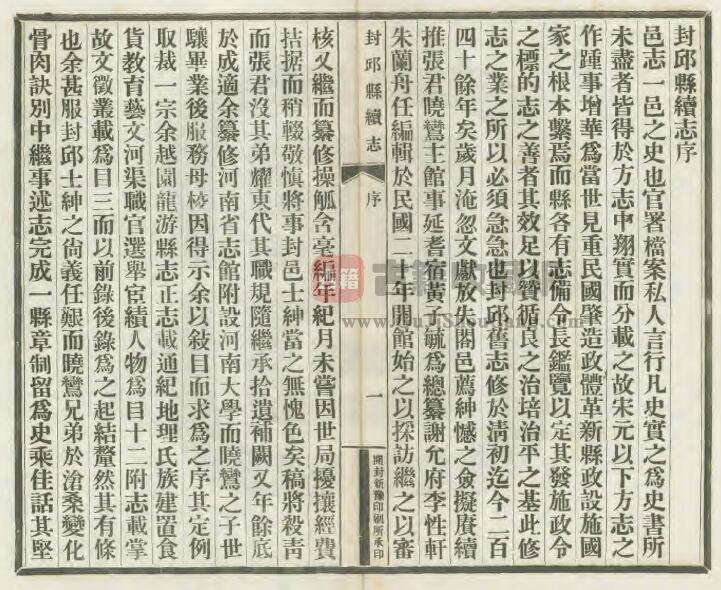 封邱縣續志序
邑志一邑之史也官署檔案私人言行凡史實之為史書所
未盡者皆得於方志中翔實而分載之故宋元以下方志之
作踵事增華為當世見重民國肇造政體革新縣政設施國
家之根本繫焉而縣各有志備令長鑑覽以定其發施政令
之標的志之善者其效足以贊循良之治培治平之基此修
志之業之所以必須急急也封邱舊志修於淸初迄今二百
四十餘年矣歲月淹忽文獻放失闔邑薦紳憾之僉擬賡續
推張君曉鸞主館事延耆宿黃子毓為總纂謝允府李性軒
朱蘭舟任編輯於民國二十年開館始之以採訪繼之以審
封邱縣續志
序
一
開封新豫印刷所承印
核又繼而纂修操觚含毫編年紀月未嘗因世局擾攘經費
拮据而稍輟敬愼將事封邑士紳當之無愧色矣稿將殺靑
而張君沒其弟耀東代其職規隨繼承拾遺補闕又年餘底
於成適余纂修河南省志館附設河南大學而曉鸞之子世
驤畢業後服務母校因得示余以敍目而求為之序其定例
取裁一宗余越園龍游縣志正志載通紀地理氏族建置食
貨教育藝文河渠職官選舉宦績人物為目十二附志載掌
故文徵叢載為目三而以前錄後錄為之起結釐然其有條
也余甚服封邱士紳之尙義任艱而曉鸞兄弟於滄桑變化
骨肉訣別中繼事述志完成一縣章制留為史乘佳話其堅
古籍
www.